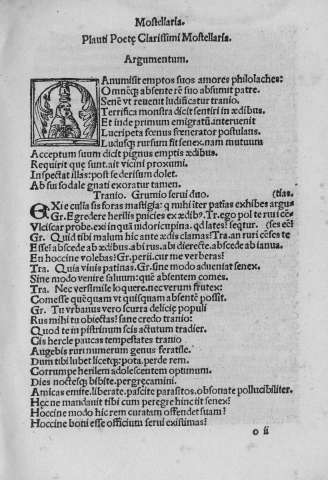 Mostellaria.
Plauti Poetę Clarissimi Mostellaria.
Argumentum.
MAnumisit emptos suos amores philolaches:
Omnēq; absente rē suo absumit patre.
Senē vt reuenit ludificatur tranio,
Terrifica monstra dicit sentiri in ædibus,
Et inde primum emigratū.interuenit
Lucripeta fœnus fœnerator postulans.
Ludusq; rursum fit senex.nam mutuum
Acceptum suum dicit pignus emptis ædibus.
Requirit que sunt.ait vicini proximi.
Inspectat illas:post se derisum dolet.
Ab sui sodale gnati exoratur tamen.
Tranio. Grumio serui duo. (tias.
EXi e culia sis foras mastigia:q mihi iter patias exhibes argu
Gr.Egredere herilis pnicies ex ædib⁹.Tr.ego pol te rui cē
Vlciscar probe.exi inquā nidoricupina.qd lates? (ses cēs?
Gr. Quid tibi malum hic ante ædis clamas?Tra.an ruri cēses te
Esse? abscede ab ædibus.abi rus.abi dierecte.abscede ab ianua.
En hoccine volebas?Gr.perii.cur me verberas?
Tra. Quia viuis patinas.Gr.sine modo adueniat senex.
Sine modo venire saluum:quē absentem comes.
Tra. Nec verisimile loquere.nec verum frutex:
Comesse quēquam vt quisquam absentē possit.
Gr. Tu vrbanus vero scurra delicię populi
Rus mihi tu obiectas? sane credo tranio:
Quod te in pistrinum scis actutum tradier.
Cis hercle paucas tempestates tranio
Augebis ruri numerum genus feratile.
Dum tibi lubet licetq; pota.perde rem.
Corrumpe herilem adolescentem optimum.
Dies noctesq; bibite.pergręcamini.
Amicas emite.liberate.pascite parasitos.obsonate pollucibiliter.
Hęc ne mandauit tibi cum peregre hinc iit senex?
Hoccine modo hic rem curatam offendet suam?
Hoccine boni esse officium serui existimas?
o ii